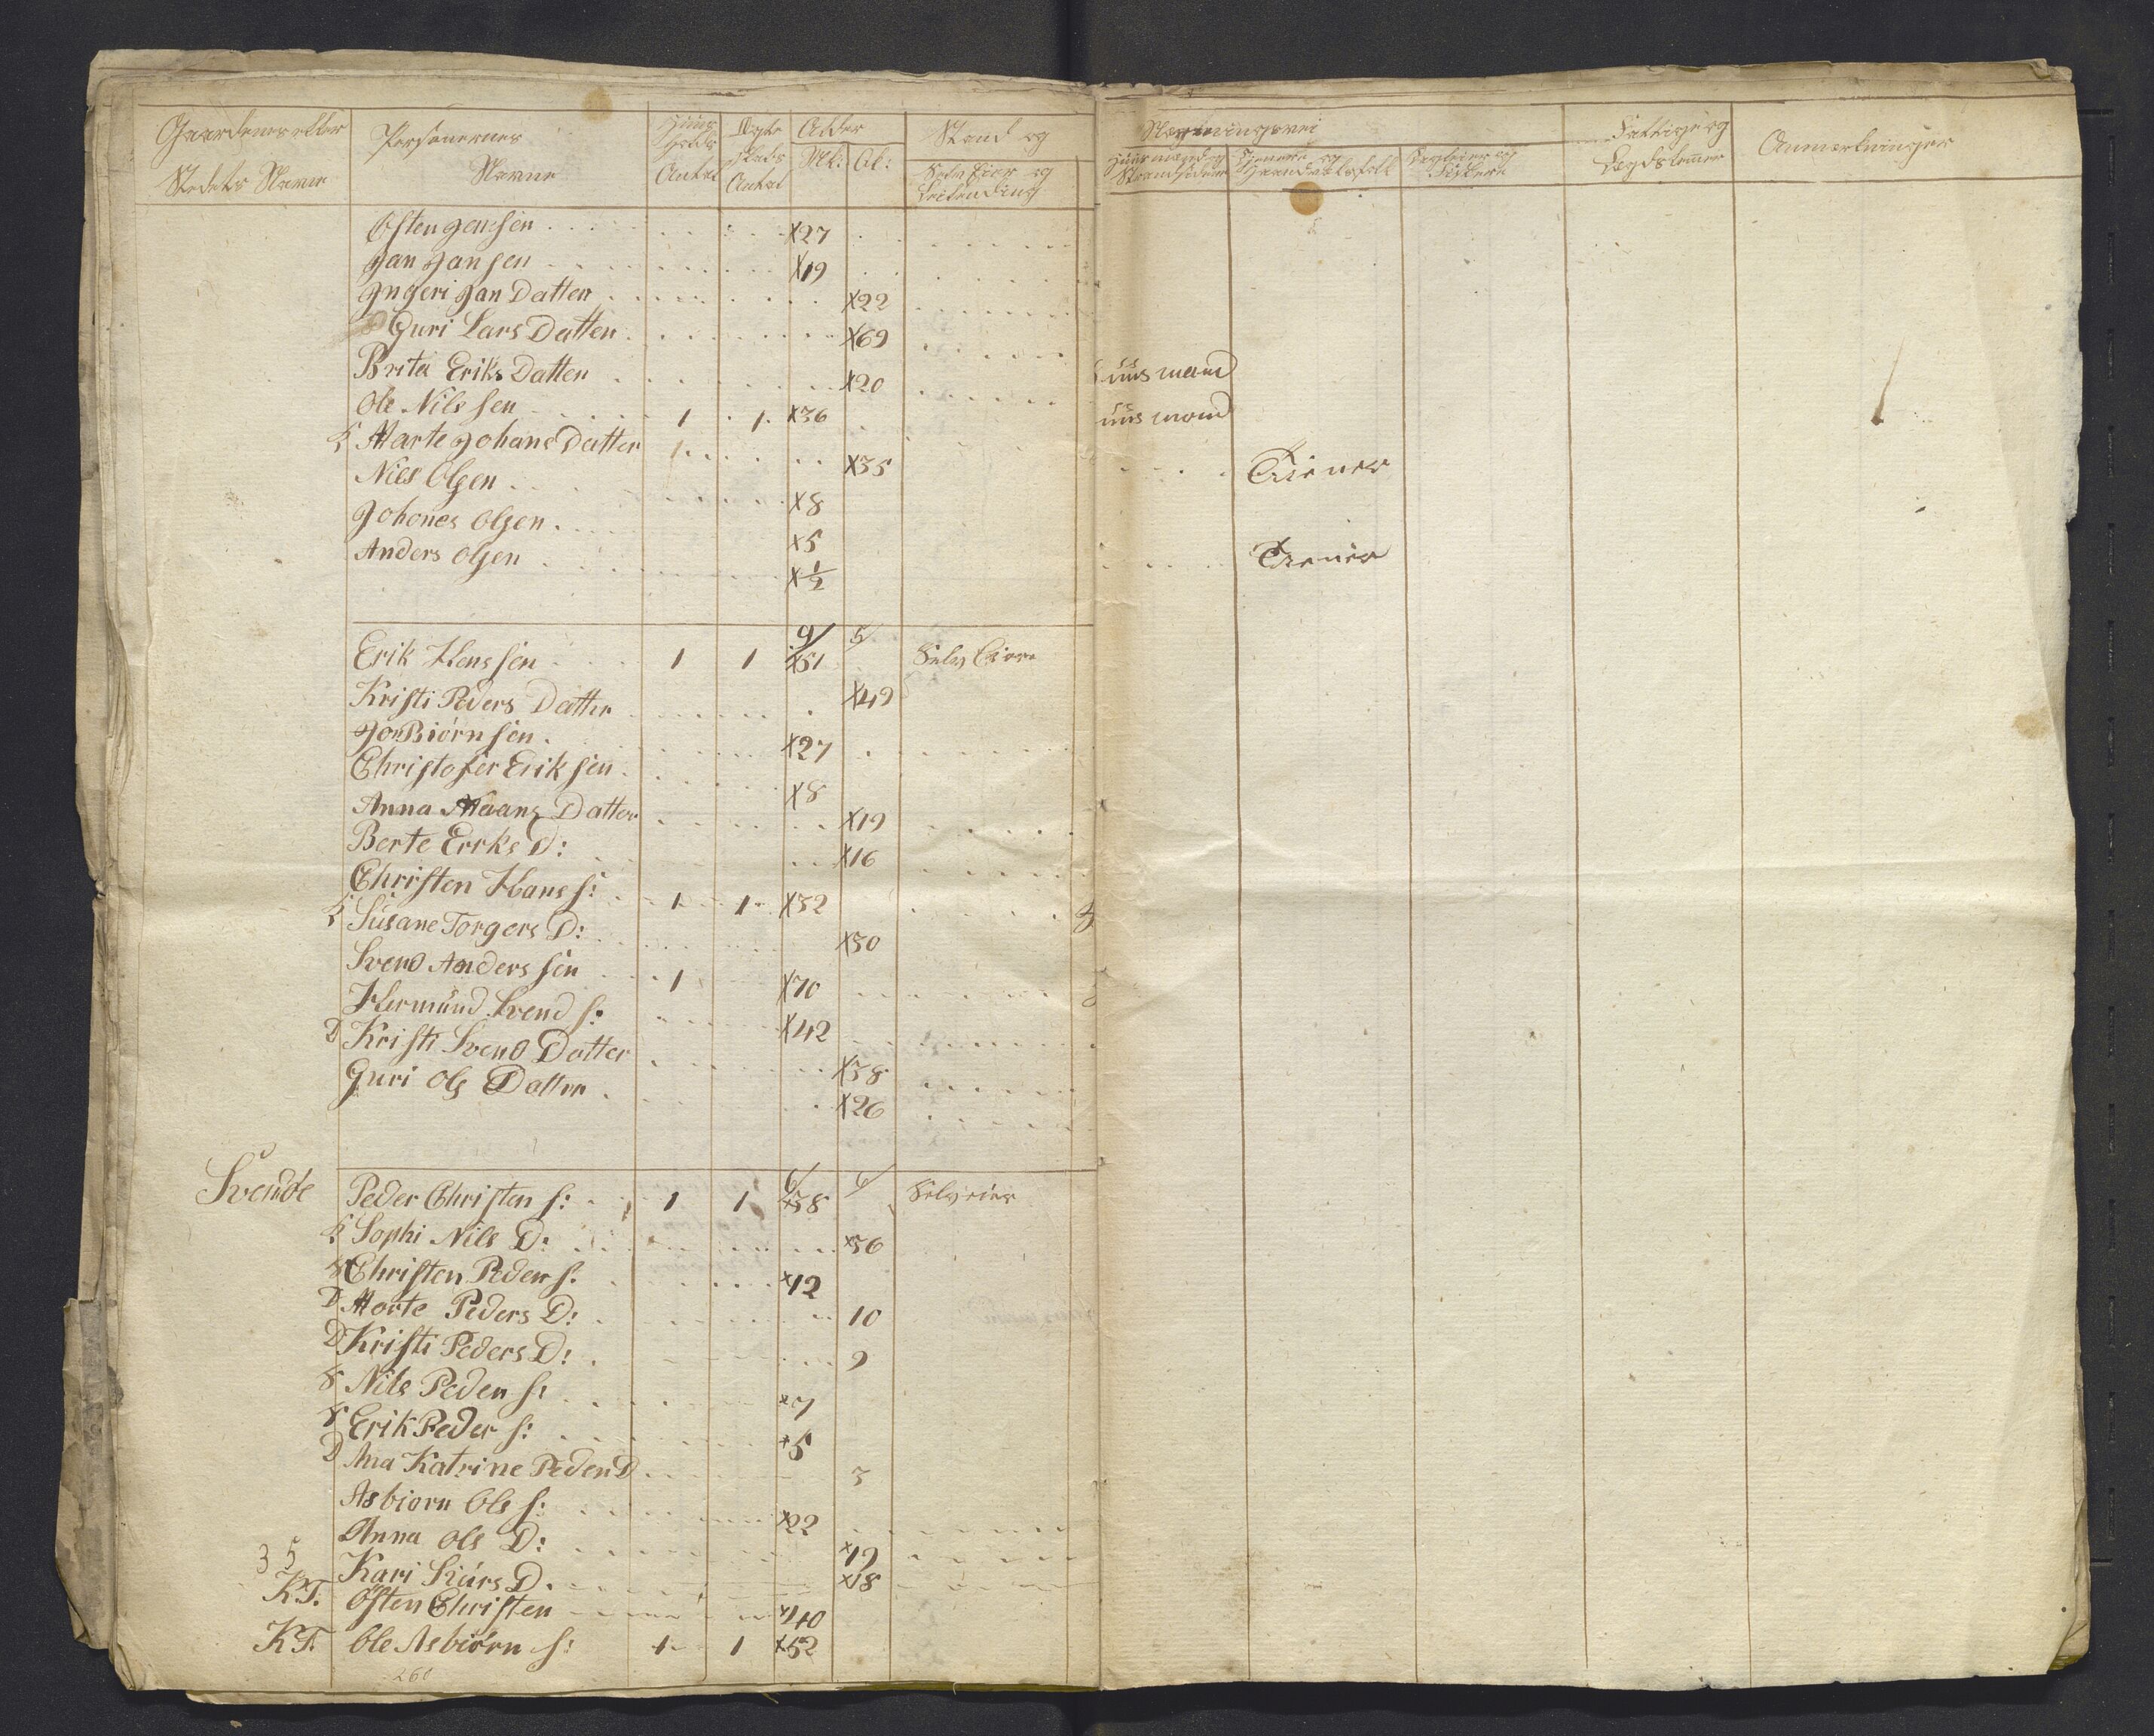 Gaardens eller Stedets Navne | Personernes Navne | Huus Holds Antal | Ægte skabs Antal | Alder M.k: Q.k: | Stand og Selv Eier og Leilending | Næringsvei Huusmænd og Strandsidere | Tienere og Haandværksfolk | Fiskere | Fattige og Lægdslemer | Anmerkninger
Østen Jensen X27
Jan Jansen X19
Jngeri Jan Datter X22
Guri Lars Datter X69
Brita Eriks Datter X20 Huusmand
Ole Nilssen 1 1 X36 uusmand
K Marte Johans Datter 1 X35
Nils Olsen X8 Tiener
Johanes Olsen X5
Anders Olsen X½ Tiener
9/ 5/
Erik Hanssen 1 1 X51 Selv Eier
Kristi Peders Datter X49
Jon Biørnsen X27
Christofer Eriksen X8
Anna Maans Datter X19
Berte Eriks D: X16
Christen Hans s: 1 1 X52
K Susane Torgers D: X50
Svend Anderssen 1 X70
Hermund Svend s: X42
D Kristi Svend Datter X38
Guri Ols Datter X26
6/ 6/
Svende Peder Christen s: 1 1 X38 Selveier
K Sophi Nils D: X36
S Christen Peder s: X12
D Morte Peders D: 10
D Kristi Peders D: 9
S Nils Peder s: X7
S Erik Peder s: X5
D Ana Katrine Peder D 3
Asbiørn Ols s: X22
Anna Ols D: X19
35 Kari Siurs D. X18
KT. Østen Christen X40
KT. Ole Asbiørn s: 1 1 X52
260